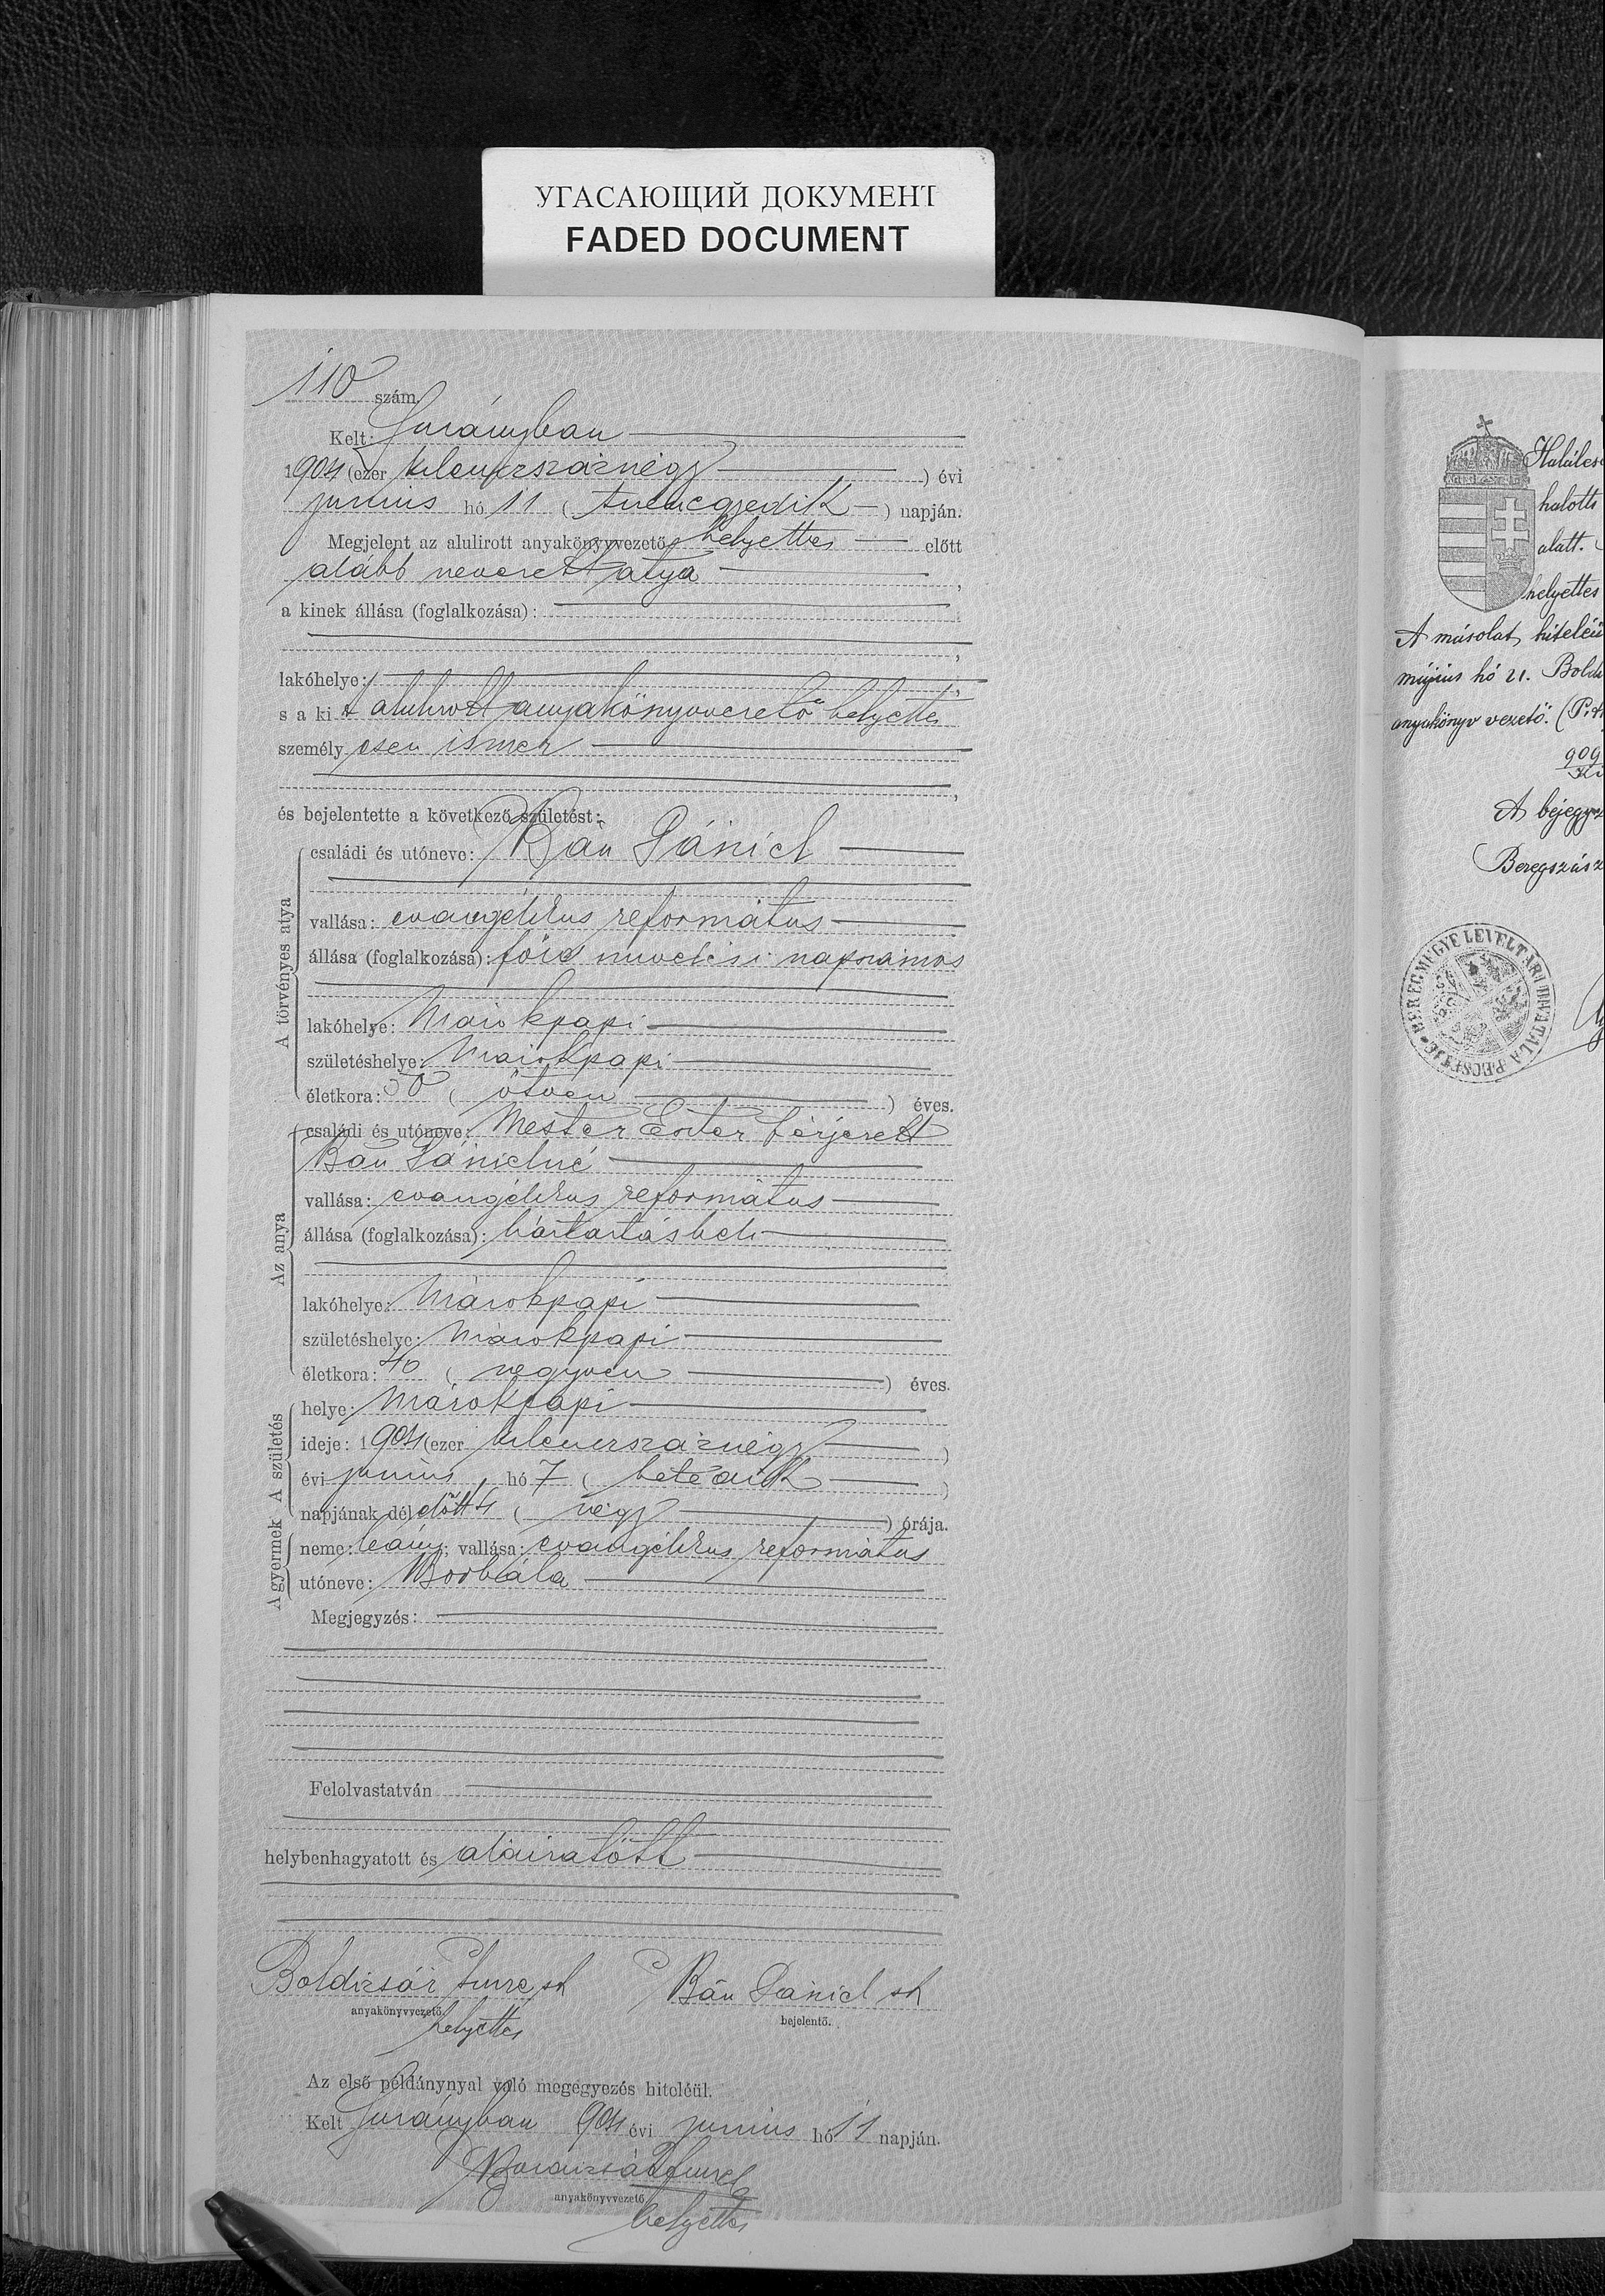 УГАСАЮЩИЙ ДОКУМЕНТ
FADED DOCUMENT
110 szám.
Kelt: Surányban
1904 (ezer kilenczszáznégy) évi
junius hó 11 (tizenegyedik) napján.
Megjelent az alulirott anyakönyvvezető helyettes előtt
alább nevezett atya,
a kinek állása (foglalkozása):
lakóhelye:
s a kit alulirott anyakönyvvezető helyettes
személyesen ismer
és bejelentette a következő születést:
A törvényes atya
családi és utóneve: Bán Dániel
vallása: evangélikus református
állása (foglalkozása): föld művelési napszámos
lakóhelye: Márokpapi
születéshelye: Márokpapi
életkora: 50 (ötven) éves.
Az anya
családi és utóneve: Mester Eszter férjezett
Bán Dánielné
vallása: evangélikus református
állása (foglalkozása): háztartásbeli
lakóhelye: Márokpapi
születéshelye: Márokpapi
életkora: 40 (negyven) éves.
A születés
helye: Márokpapi
ideje: 1904 (ezer kilenczszáznégy)
évi junius hó 7 (hetedik)
napjának délelőtt 4 (négy) órája.
A gyermek
neme: leány; vallása: evangélikus református
utóneve: Borbála
Megjegyzés:
Felolvastatván
helybenhagyatott és aláiratott
Boldizsár Imre sk Bán Dániel sk
anyakönyvvezető. bejelentő.
helyettes
Az első példánynyal való megegyezés hiteléül.
Kelt Surányban 904 évi junius hó 11 napján.
Boldizsár Imre
anyakönyvvezető
helyettes
halotti
alatt.
helyettes
A másolat hiteléü
május hó 21. Boldi
anyakönyv vezető. (P.H
909
A bejegyz
Beregszász
BEREGMEGYE LEVÉLTÁRI HIVATALA PECSÉTJE